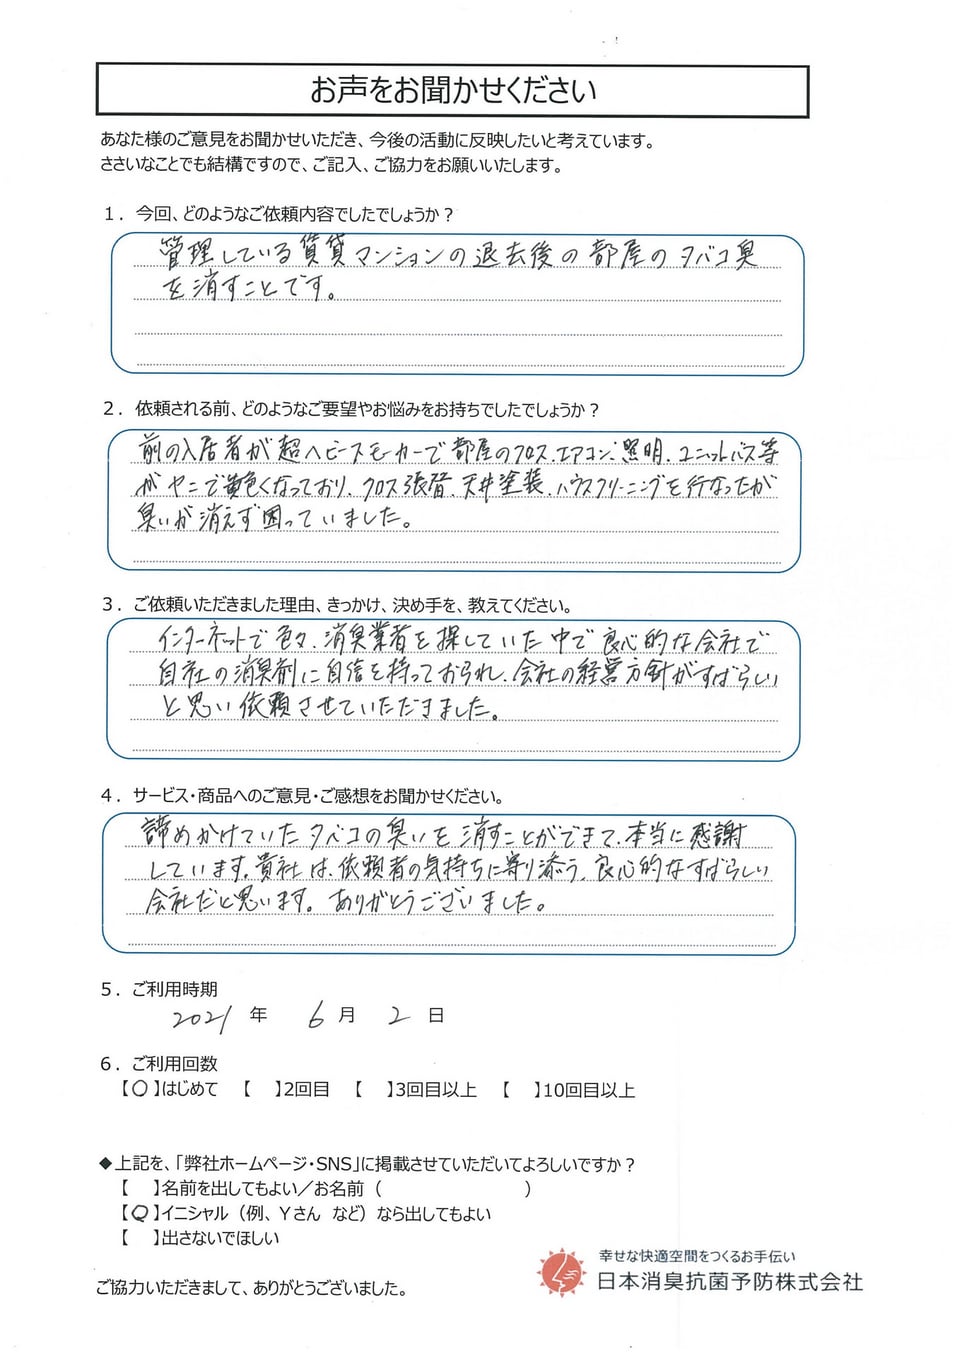 お声をお聞かせください
あなた様のご意見をお聞かせいただき、今後の活動に反映したいと考えています。
ささいなことでも結構ですので、ご記入、ご協力をお願いいたします。
1．今回、どのようなご依頼内容でしたでしょうか？
管理している賃貸マンションの退去後の部屋のタバコ臭
を消すことです。
2．依頼される前、どのようなご要望やお悩みをお持ちでしたでしょうか？
前の入居者が超ヘビースモーカーで部屋のクロス、エアコン、照明、ユニットバス等
がヤニで黄色くなっており、クロス張替、天井塗装、ハウスクリーニングを行なったが
臭いが消えず困っていました。
3．ご依頼いただきました理由、きっかけ、決め手を、教えてください。
インターネットで色々、消臭業者を探していた中で良心的な会社で
自社の消臭剤に自信を持っておられ、会社の経営方針がすばらしい
と思い依頼させていただきました。
4．サービス・商品へのご意見・ご感想をお聞かせください。
諦めかけていたタバコの臭いを消すことができて、本当に感謝
しています。貴社は、依頼者の気持ちに寄り添う、良心的なすばらしい
会社だと思います。ありがとうございました。
5．ご利用時期
2021 年 6 月 2 日
6．ご利用回数
【○】はじめて 【 】2回目 【 】3回目以上 【 】10回目以上
◆上記を、「弊社ホームページ・SNS」に掲載させていただいてよろしいですか？
【 】名前を出してもよい／お名前（ ）
【○】イニシャル（例、Ｙさん など）なら出してもよい
【 】出さないでほしい
ご協力いただきまして、ありがとうございました。
幸せな快適空間をつくるお手伝い
日本消臭抗菌予防株式会社